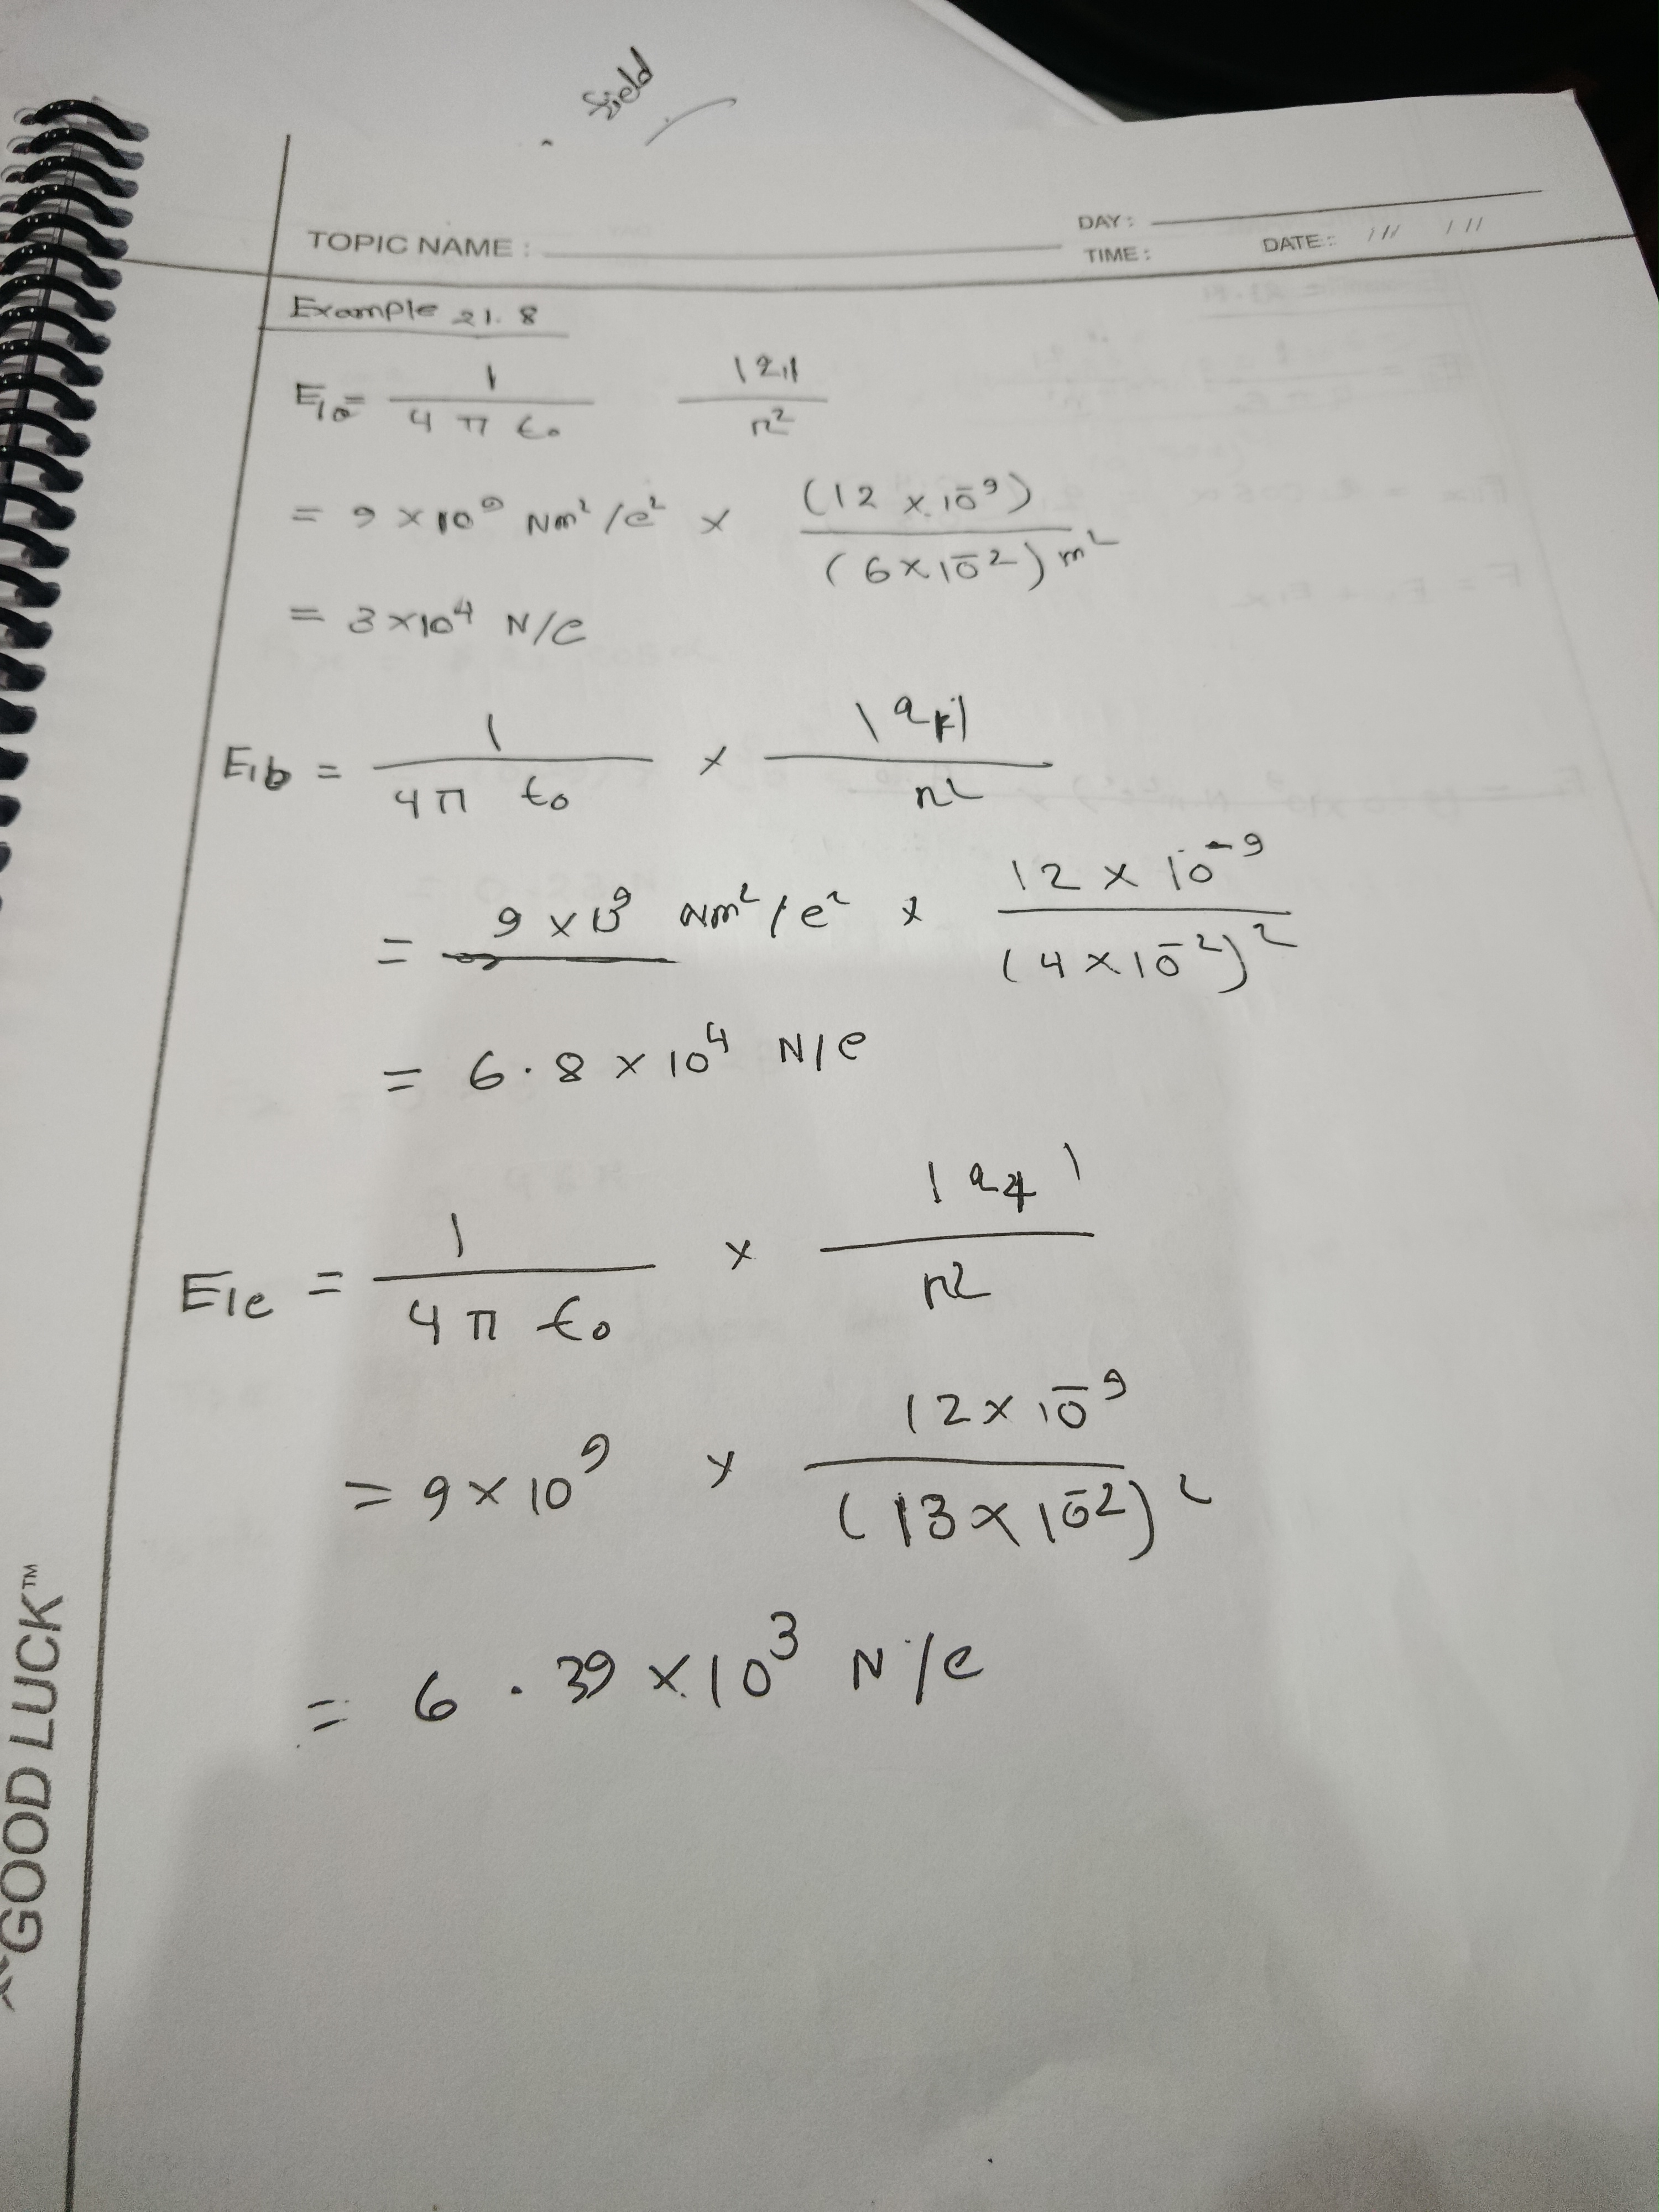 field
DAY:
TOPIC NAME :
TIME :
DATE: / /
Example 21.8
E1a = 1 / 4π ϵ0 |q1| / r²
= 9 × 10⁹ Nm²/c² × (12 × 10⁻⁹) / (6 × 10⁻²) m²
= 3 × 10⁴ N/C
E1b = 1 / 4π ϵ0 × |q1| / r²
= 9 × 10⁹ Nm²/c² × 12 × 10⁻⁹ / (4 × 10⁻²)²
= 6.8 × 10⁴ N/C
E1c = 1 / 4π ϵ0 × |q1| / r²
= 9 × 10⁹ × 12 × 10⁻⁹ / (13 × 10⁻²)²
= 6.39 × 10³ N/C
GOOD LUCK™